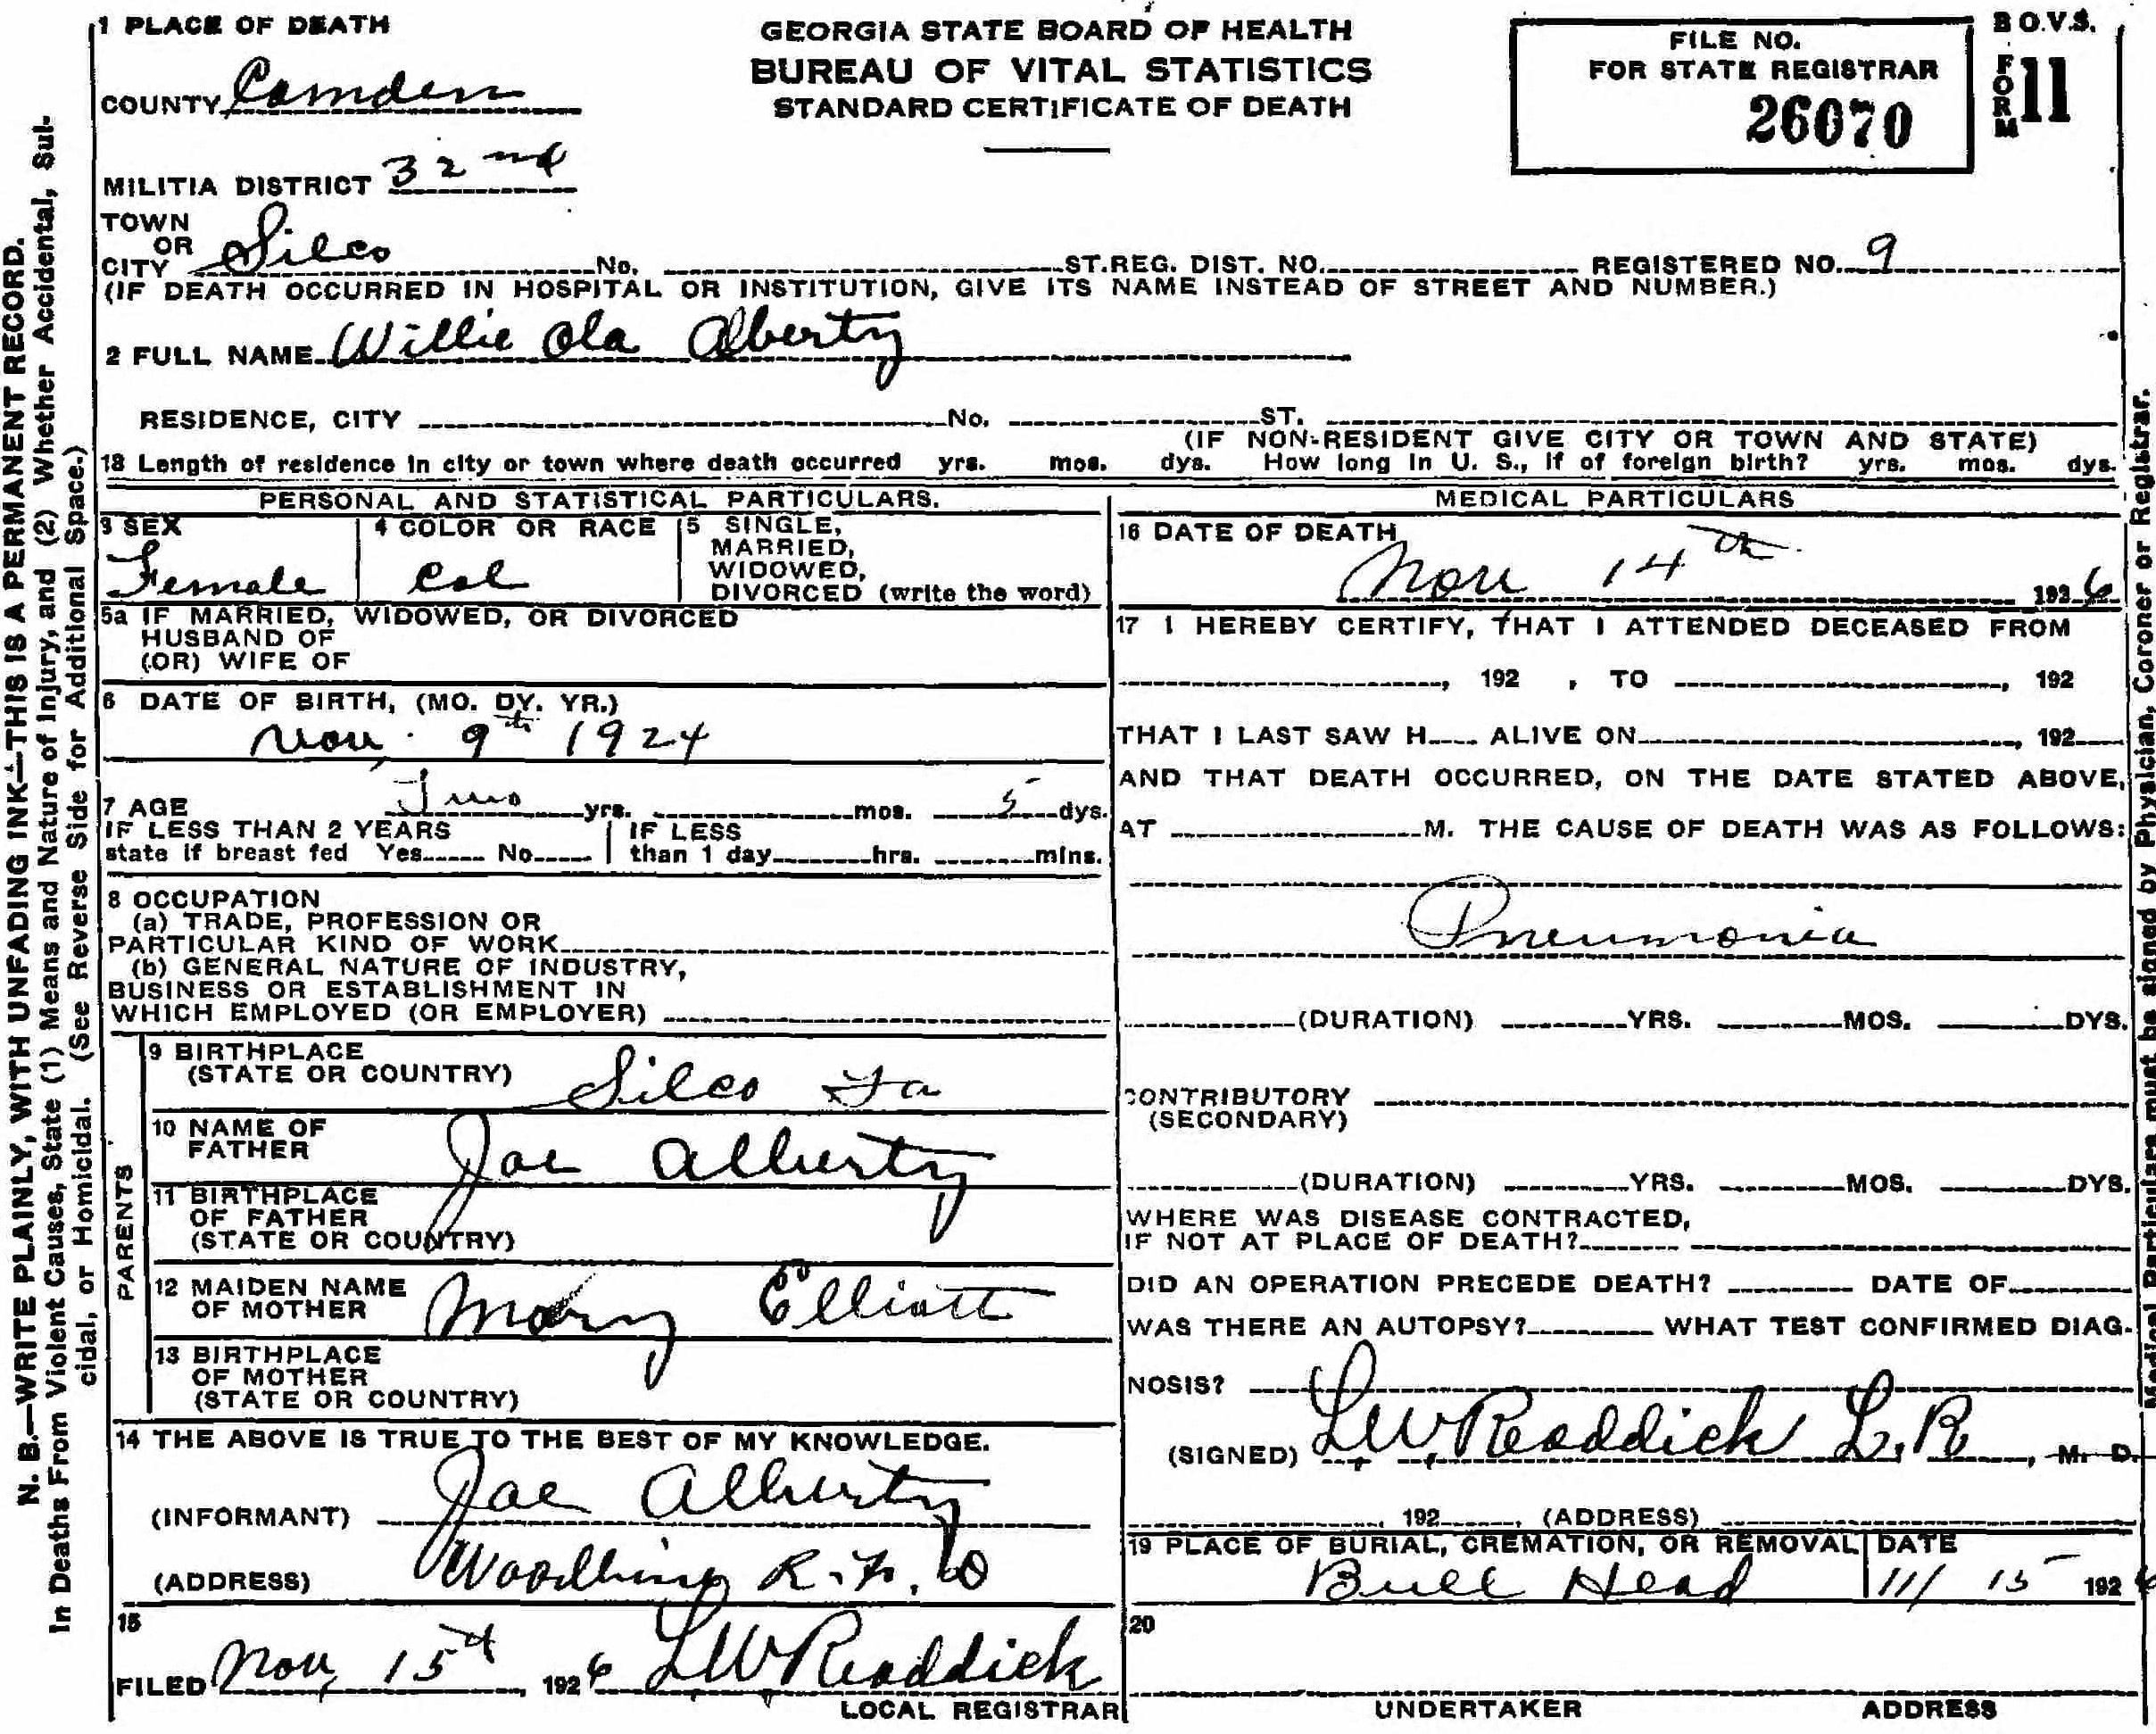 1 PLACE OF DEATH
COUNTY Camden
MILITIA DISTRICT 32nd
TOWN
OR
CITY Silco No. ST. REG. DIST. NO. REGISTERED NO. 9
(IF DEATH OCCURRED IN HOSPITAL OR INSTITUTION, GIVE ITS NAME INSTEAD OF STREET AND NUMBER.)
GEORGIA STATE BOARD OF HEALTH
BUREAU OF VITAL STATISTICS
STANDARD CERTIFICATE OF DEATH
FILE NO.
FOR STATE REGISTRAR
26070
B.O.V.S.
FORM 11
2 FULL NAME Willie Ola Alberty
RESIDENCE, CITY No. ST.
(IF NON-RESIDENT GIVE CITY OR TOWN AND STATE)
18 Length of residence in city or town where death occurred yrs. mos. dys. How long in U. S., if of foreign birth? yrs. mos. dys.
PERSONAL AND STATISTICAL PARTICULARS.
3 SEX
Female
4 COLOR OR RACE
Col
5 SINGLE,
MARRIED,
WIDOWED,
DIVORCED (write the word)
5a IF MARRIED, WIDOWED, OR DIVORCED
HUSBAND OF
(OR) WIFE OF
6 DATE OF BIRTH, (MO. DY. YR.)
Nov. 9th 1924
7 AGE Two yrs. mos. 5 dys.
IF LESS THAN 2 YEARS
state if breast fed Yes No
IF LESS
than 1 day hrs. mins.
8 OCCUPATION
(a) TRADE, PROFESSION OR
PARTICULAR KIND OF WORK
(b) GENERAL NATURE OF INDUSTRY,
BUSINESS OR ESTABLISHMENT IN
WHICH EMPLOYED (OR EMPLOYER)
9 BIRTHPLACE
(STATE OR COUNTRY) Silco Ga
PARENTS
10 NAME OF
FATHER Joe Alberty
11 BIRTHPLACE
OF FATHER
(STATE OR COUNTRY)
12 MAIDEN NAME
OF MOTHER Mary Elliott
13 BIRTHPLACE
OF MOTHER
(STATE OR COUNTRY)
14 THE ABOVE IS TRUE TO THE BEST OF MY KNOWLEDGE.
(INFORMANT) Joe Alberty
(ADDRESS) Woodbine R.F.D
15
FILED Nov 15th, 1926 L W Readdick
LOCAL REGISTRAR
MEDICAL PARTICULARS
16 DATE OF DEATH
Nov 14th 1926
17 I HEREBY CERTIFY, THAT I ATTENDED DECEASED FROM
, 192 , TO , 192
THAT I LAST SAW H ALIVE ON , 192
AND THAT DEATH OCCURRED, ON THE DATE STATED ABOVE,
AT M. THE CAUSE OF DEATH WAS AS FOLLOWS:
Pneumonia
(DURATION) YRS. MOS. DYS.
CONTRIBUTORY
(SECONDARY)
(DURATION) YRS. MOS. DYS.
WHERE WAS DISEASE CONTRACTED,
IF NOT AT PLACE OF DEATH?
DID AN OPERATION PRECEDE DEATH? DATE OF
WAS THERE AN AUTOPSY? WHAT TEST CONFIRMED DIAG-
NOSIS?
(SIGNED) L.W. Readdick L.R , M. D.
, 192 , (ADDRESS)
19 PLACE OF BURIAL, CREMATION, OR REMOVAL
Bull Head
DATE
11/ 15 1926
20
UNDERTAKER ADDRESS
N. B.—WRITE PLAINLY, WITH UNFADING INK—THIS IS A PERMANENT RECORD.
In Deaths From Violent Causes, State (1) Means and Nature of Injury, and (2) Whether Accidental, Sui-
cidal, or Homicidal. (See Reverse Side for Additional Space.)
Medical Particulars must be signed by Physician, Coroner or Registrar.